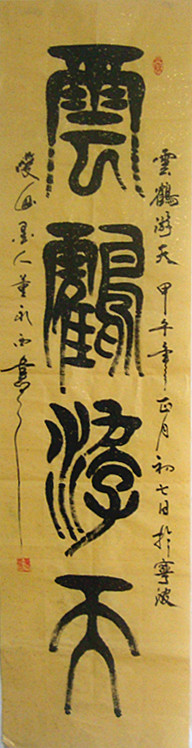 雲鶴游天
雲鶴游天 甲午年正月初七日於寧波
墨人董永西書